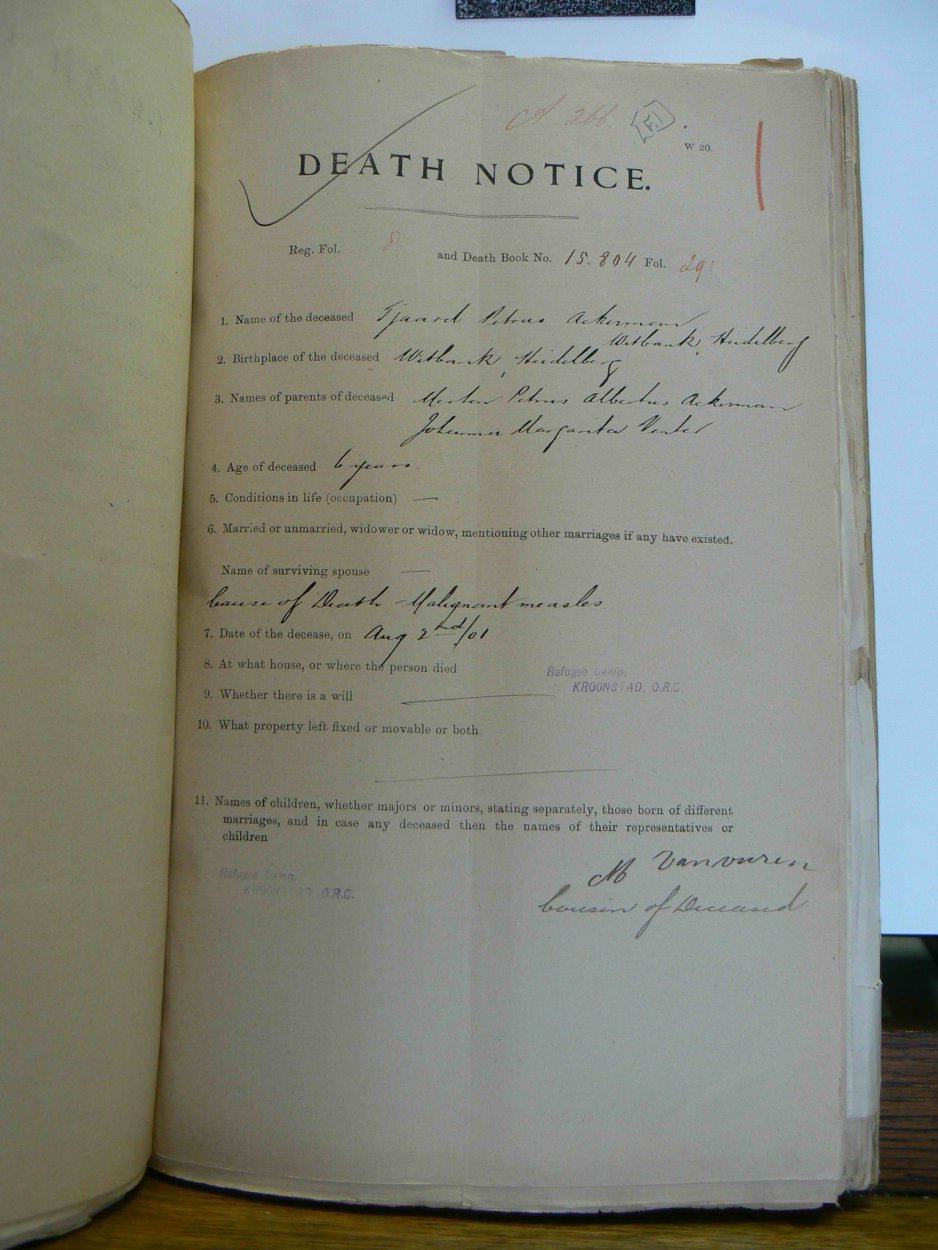 A 266. F1
W 20.
DEATH NOTICE.
Reg. Fol. 8 and Death Book No. 15.804 Fol. 291
1. Name of the deceased Tjaard Petrus Ackerman
Witbank, Heidelberg
2. Birthplace of the deceased Witbank, Heidelberg
3. Names of parents of deceased Petrus Albertus Ackerman
Johanna Margarita Venter
4. Age of deceased 6 years.
5. Conditions in life (occupation) —
6. Married or unmarried, widower or widow, mentioning other marriages if any have existed.
Name of surviving spouse —
Cause of Death - Malignant measles
7. Date of the decease, on Aug 2nd/01
8. At what house, or where the person died Refugee Camp,
KROONSTAD, O.R.C.
9. Whether there is a will
10. What property left fixed or movable or both
11. Names of children, whether majors or minors, stating separately, those born of different
marriages, and in case any deceased then the names of their representatives or
children
M Vanvuren
Refugee Camp,
KROONSTAD, O.R.C.
Cousin of Deceased